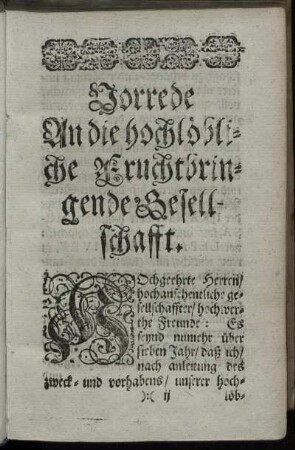 Vorrede
An die hochlöbli-
che Fruchtbrin-
gende Gesell-
schafft.
HOchgeehrte Herren/
hochansehentliche ge-
sellschaffter/ hochwer-
the Freunde: Es
seynd nunmehr über
sieben Jahr/ daß ich/
nach anleitung des
zweck- und vorhabens/ unserer hoch-
):( ij
löb-